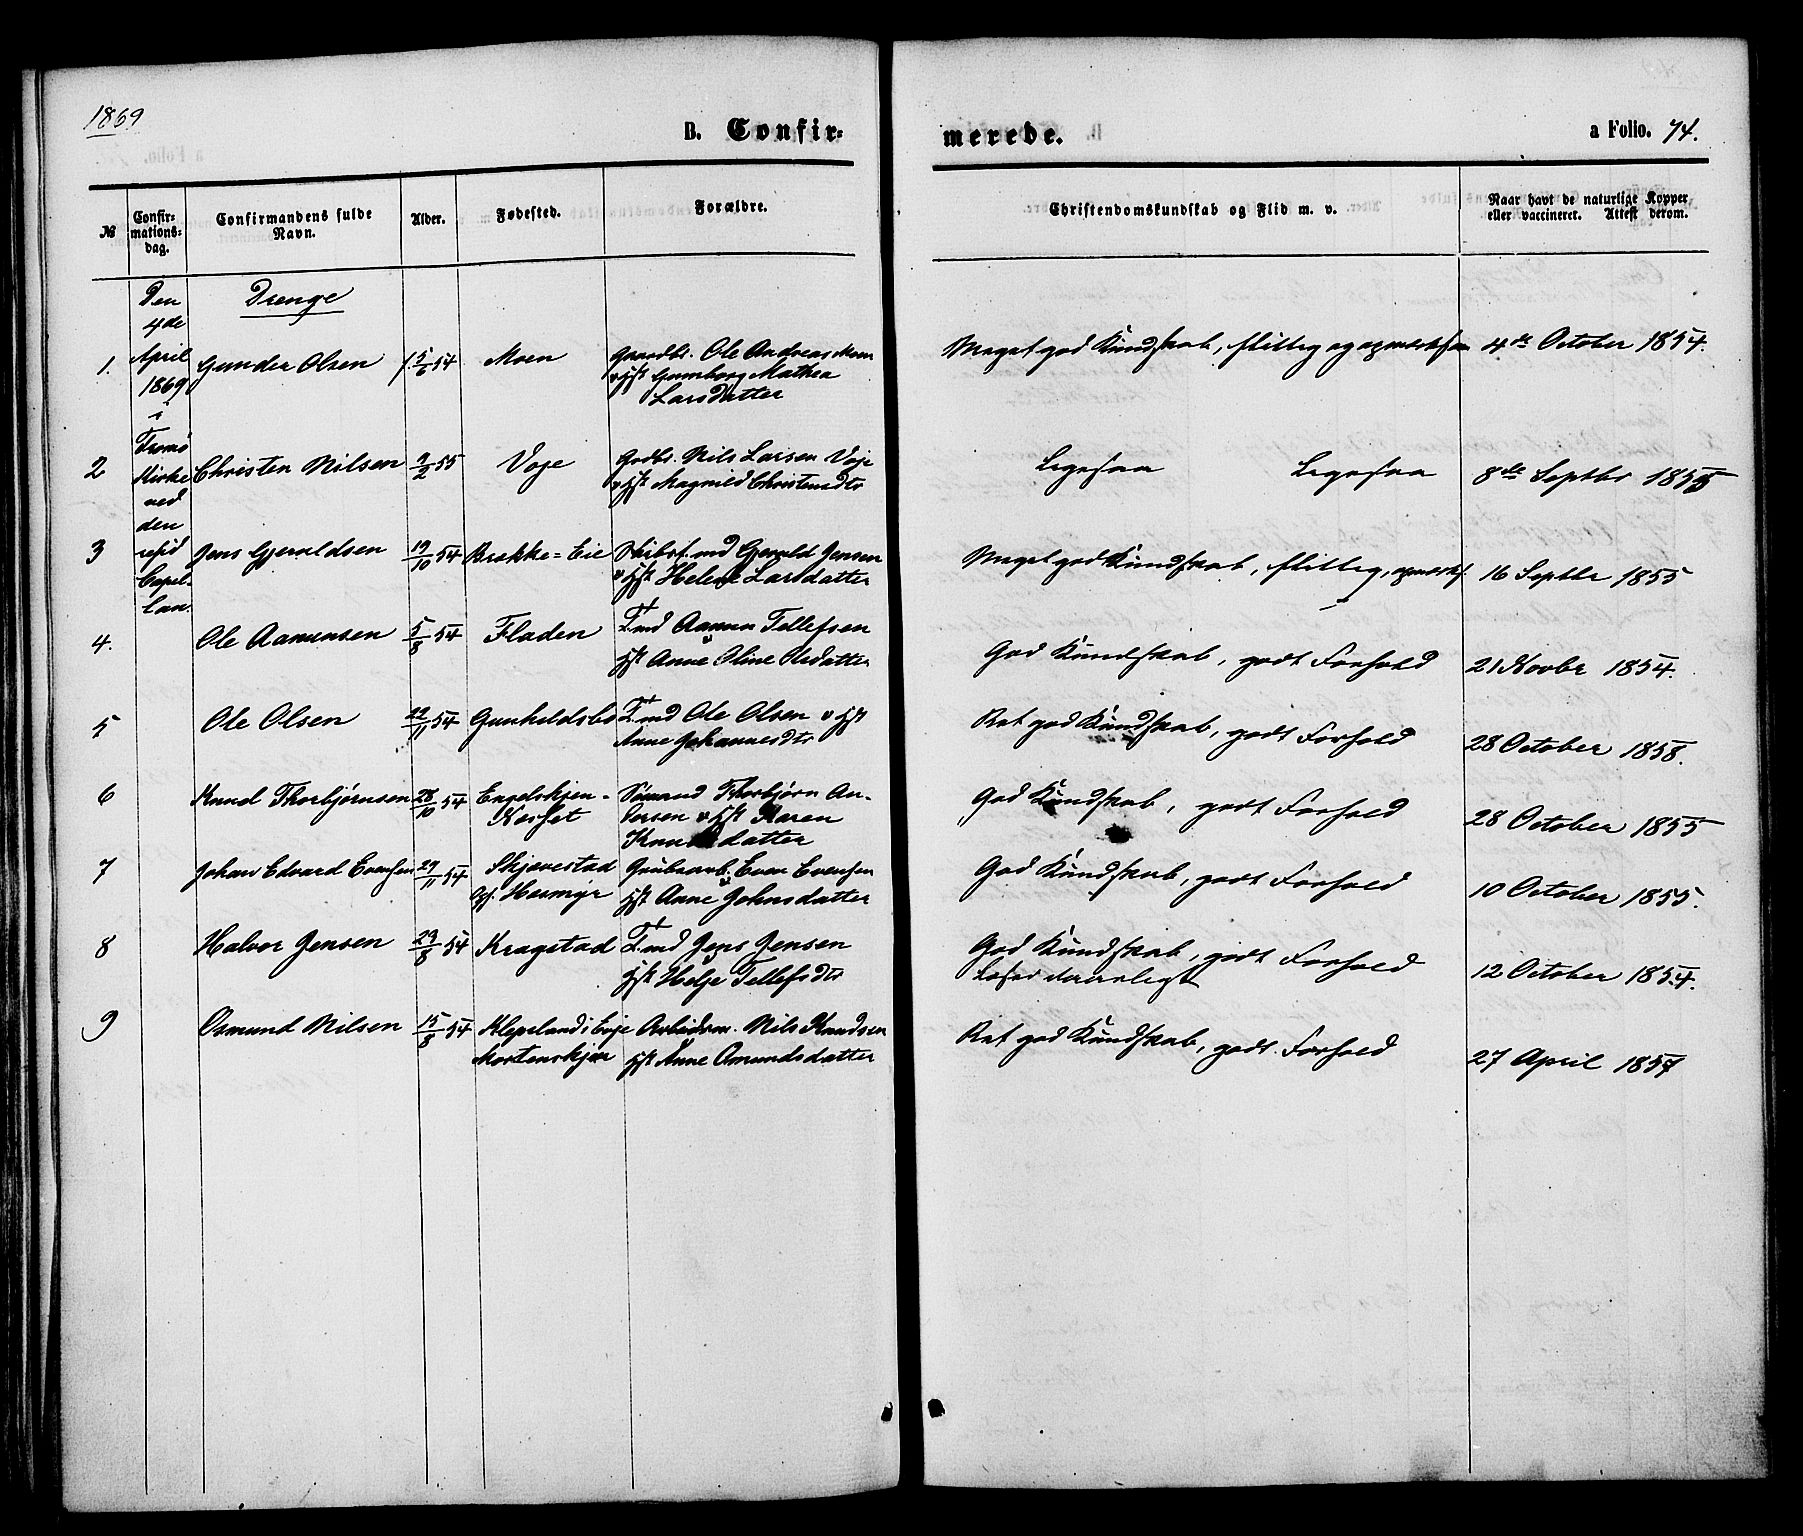 1869
B. Confir-
merede.
a Folio. 74.
№
Confir-
mations-
dag.
Confirmandens fulde
Navn.
Alder.
Fødested.
Forældre.
Christendomskundskab og Flid m. v.
Naar havt de naturlige Kopper
eller vaccineret. Attest derom.
Den
4de
April
1869
i
Tromø
Kirke
ved
den
resid
Capel-
lan.
Drenge
1. Gunder Olsen 5/6 54 Moen Gaardbr. Ole Andreas Moen
v Hst Gunborg Mathea
Larsdatter
Meget god Kundskab, flittig og opmærksom 4de October 1854.
2 Christen Nilsen 9/2 55 Voje Gdbr. Nils Larsen Voje
v Hst Magnild Christensdtr
Ligesaa Ligesaa 8de Septbr 1855
3 Jens Gjeruldsen 19/10 54 Brække-Eie Skibst.md Gjeruld Jensen
v Hst Helene Larsdatter
Meget god Kundskab, flittig, opmærks. 16 Septbr 1855
4. Ole Aamunsen 5/8 54 Fladen Tmd Aamun Tellefsen
Hst Anne Oline Olsdatter
God Kundskab, godt Forhold 21 Novbr 1854.
5 Ole Olsen 22/11 54 Gunhildsbo Tmd Ole Olsen v Hst
Anne Johannesdtr
Ret god Kundskab, godt Forhold 28 October 1858.
6 Knud Thorbjørnsen 28/10 54 Engelskjen-
Næset Sømand Thorbjørn An-
dersen v Hst Karen
Knudsdatter
God Kundskab, godt Forhold 28 October 1855
7 Johan Edvard Evensen 29/11 54 Skjævestad
Hosmyr Grubearb. Even Evensen
Hst Anne Johnsdatter
God Kundskab, godt Forhold 10 October 1855.
8 Halvor Jensen 29/8 54 Kragstad Tmd Jens Jensen
Hst Helje Tellefsdtr
God Kundskab, godt Forhold
Læser daarligt 12 October 1854.
9 Osmund Nilsen 15/8 54 Klepeland i Evje
Mortenskjær Arbeidsm. Nils Knudsen
Hst Anne Omundsdatter
Ret god Kundskab, godt Forhold 27 April 1857